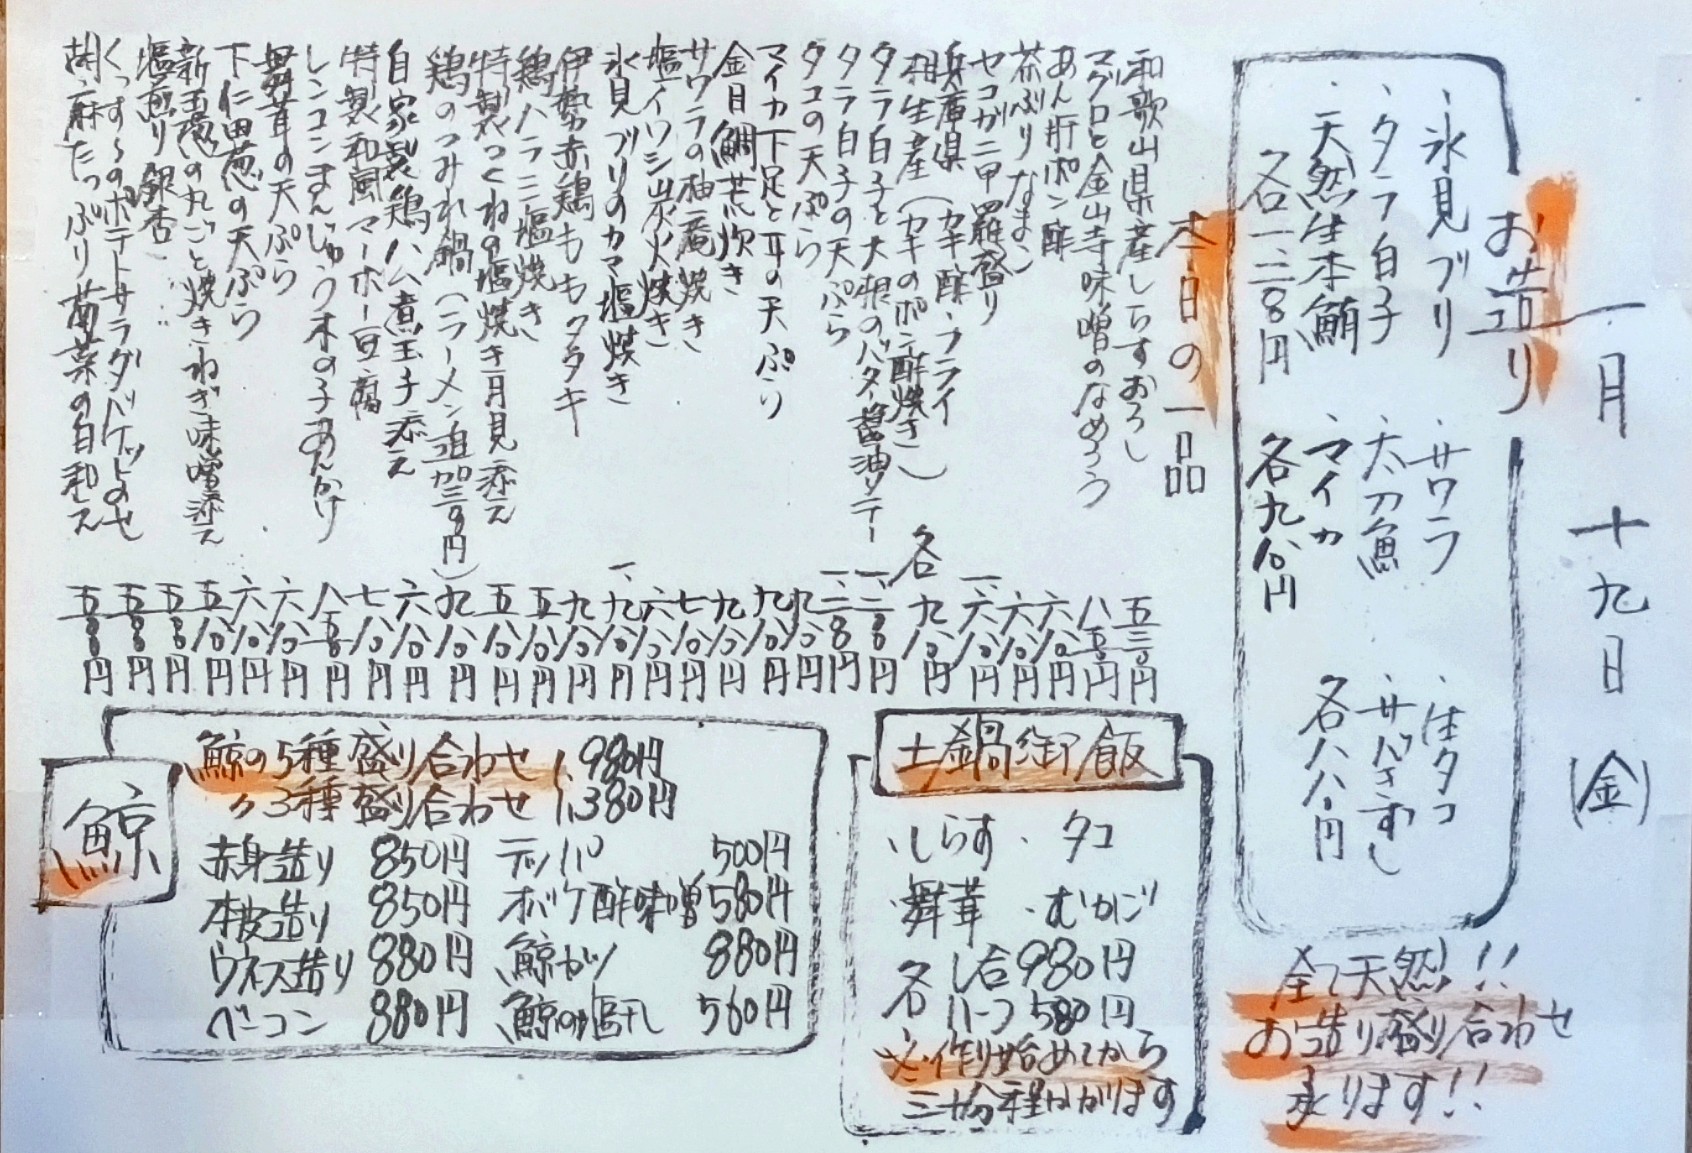 一月十九日(金)
お造り
・氷見ブリ
・タラ白子
・天然生本鮪
各一、二八〇円
・サワラ
・太刀魚
・マイカ
各九八〇円
・生タコ
・サバきずし
各八八〇円
全て天然!!
お造り盛り合わせ
承ります!!
本日の一品
和歌山県産しらすおろし 五三〇円
マグロと金山寺味噌のなめろう 八五〇円
あん肝ポン酢 六八〇円
茶ぶりなまこ 六八〇円
セコガニ甲羅盛り 一、六八〇円
兵庫県 (カキ酢・フライ
相生産 (カキのポン酢焼き) 各九八〇円
タラ白子と大根のバター醤油ソテー 一、二八〇円
タラ白子の天ぷら 一、二八〇円
タコの天ぷら 九八〇円
マイカ下足と耳の天ぷら 九八〇円
金目鯛荒炊き 九八〇円
サワラの柚庵焼き 七八〇円
塩イワシ炭火焼き 六八〇円
氷見ブリのカマ塩焼き 一、九八〇円
伊勢赤鶏ももタタキ 九八〇円
鶏ハラミ塩焼き 五八〇円
特製つくねの塩焼き月見添え 五八〇円
鶏のつみれ鍋(ラーメン追加三〇〇円) 九八〇円
自家製鶏ハム煮玉子添え 六八〇円
特製和風マーボー豆腐 七八〇円
レンコンまんじゅう木の子あんかけ 八五〇円
舞茸の天ぷら 六八〇円
下仁田葱の天ぷら 六八〇円
新玉葱の丸ごと焼きねぎ味噌添え 五八〇円
塩煎り銀杏 五五〇円
くっすものポテトサラダバケットのせ 五五〇円
胡麻たっぷり菊菜の白和え 五五〇円
土鍋御飯
・しらす ・タコ
・舞茸 ・むかご
各 1合980円
ハーフ580円
※作り始めてから
三十分程かかります
鯨
鯨の5種盛り合わせ 1,980円
〃3種盛り合わせ 1,380円
赤身造り 850円
本皮造り 850円
ウネス造り 880円
ベーコン 880円
テッパ 500円
オバケ酢味噌 580円
鯨カツ 880円
鯨の塩干し 560円